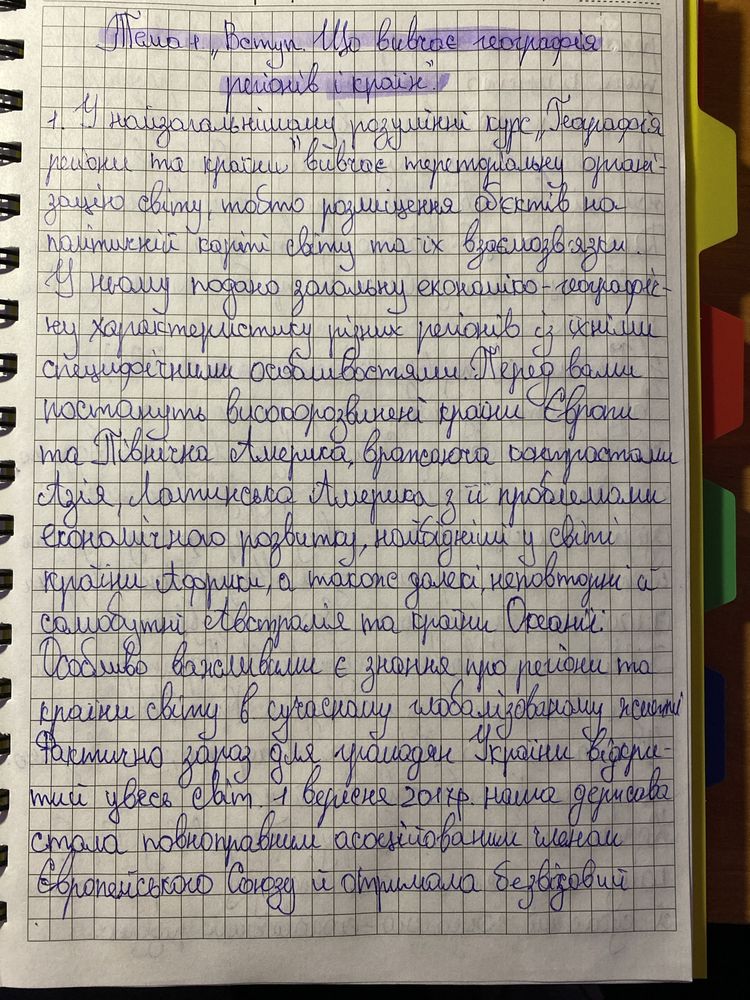 Тема 1 „Вступ. Що вивчає географія
регіонів і країн".
1. У найзагальнішому розумінні курс „Географія
регіони та країни" вивчає територіальну органі-
зацію світу, тобто розміщення об'єктів на
політичній карті світу та їх взаємозв'язки.
У ньому подано загальну економіко-географіч-
ну характеристику різних регіонів із їхніми
специфічними особливостями. Перед вами
постануть високорозвинені країни Європи
та Північна Америка, вражаюча контрастами
Азія, Латинська Америка з її проблемами
економічного розвитку, найбідніші у світі
країни Африки, а також далекі, неповторні й
самобутні Австралія та країни Океанії.
Особливо важливими є знання про регіони та
країни світу в сучасному глобалізованому житті
Фактично зараз для громадян України відкри-
тий увесь світ. 1 вересня 2017р. наша держава
стала повноправним асоційованим членом
Європейського Союзу й отримала безвізовий